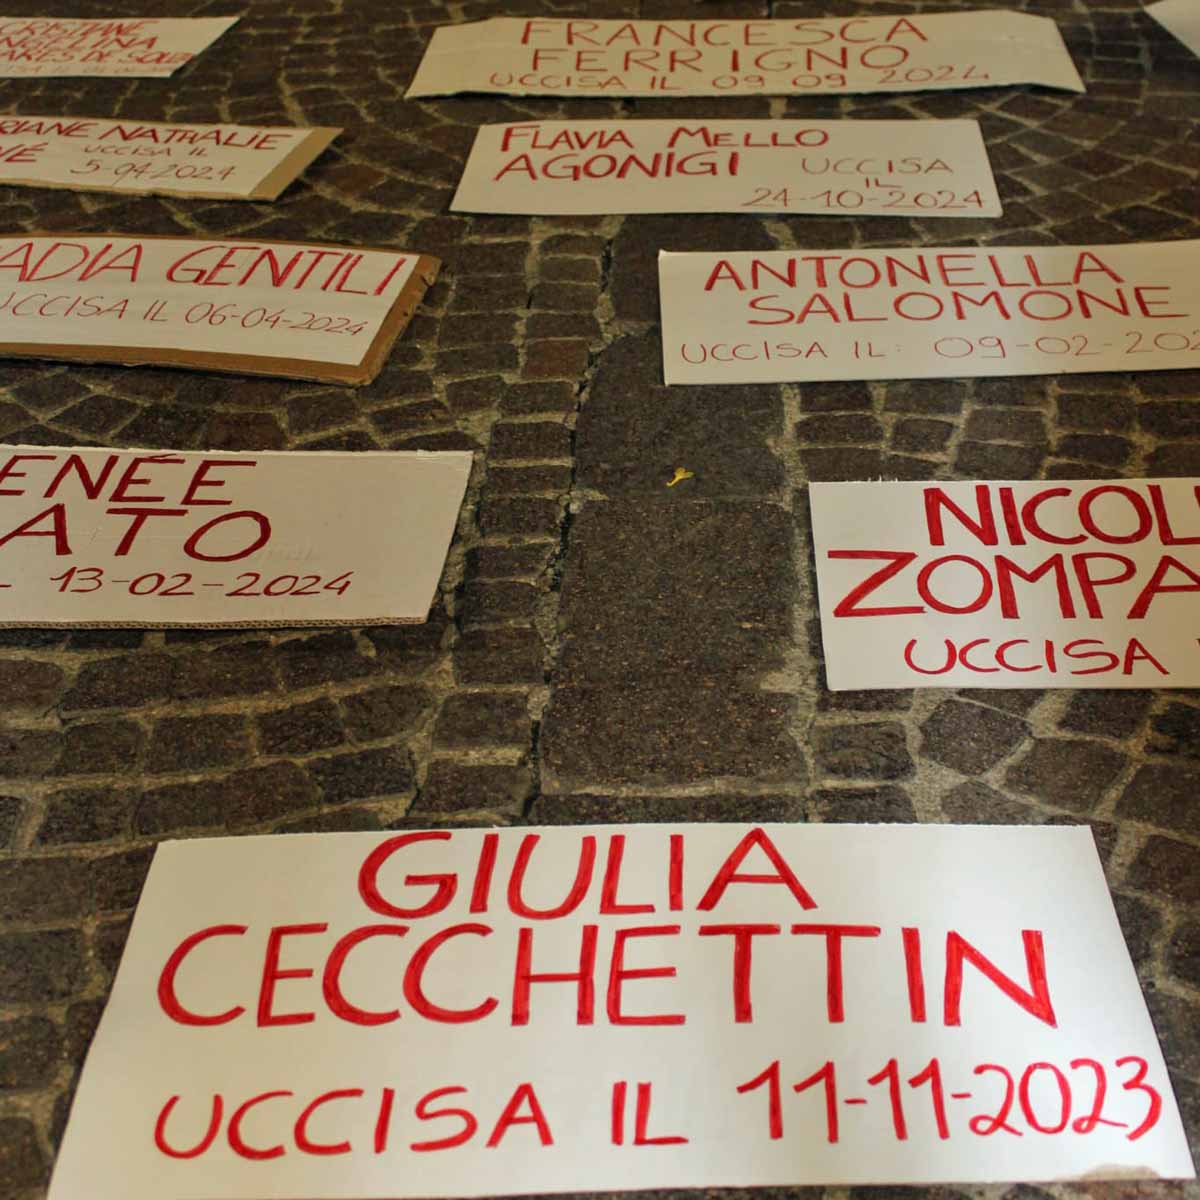 CRISTIANE
ANGELINA
SOARES DE SOUZA
FRANCESCA
FERRIGNO
UCCISA IL 09 09 2024
RIANE NATHALIE
NÉ UCCISA IL
5-04-2024
FLAVIA MELLO
AGONIGI UCCISA
IL
24-10-2024
ADIA GENTILI
UCCISA IL 06-04-2024
ANTONELLA
SALOMONE
UCCISA IL: 09-02-202
ENÉE
ATO
13-02-2024
NICOL
ZOMPA
UCCISA
GIULIA
CECCHETTIN
UCCISA IL 11-11-2023